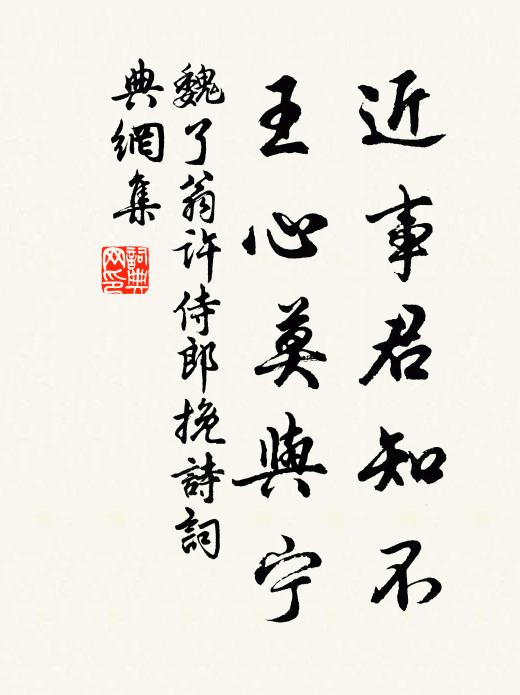 近事君知不
王心莫與宁
魏了翁許侍郎挽詩詞
典網集
詞典網印